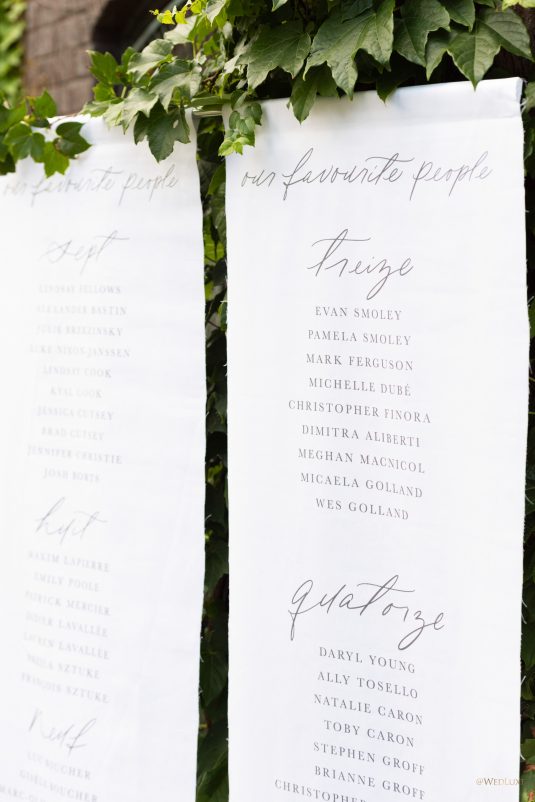 our favourite people
sept
LINDSAY FELLOWS
ALEXANDER BASTIN
JULIE BREZINSKY
LUKE NIXON-JANSSEN
LINDSIT COOK
KYAL COOK
JESSICA CUTSEY
BRAD CUTSEY
JENNIFER CHRISTIE
JOSH
huit
MAXIM LAPIERRE
EMILY POOLE
PATRICK MERCIER
DIDIER LAVALLÉE
LAUREN LAVALLÉE
SZTUKE
FRANÇOIS SZTUKE
neuf
LUC BOUCHER
GISÈLE BOUCHER
our favourite people
treize
EVAN SMOLEY
PAMELA SMOLEY
MARK FERGUSON
MICHELLE DUBÉ
CHRISTOPHER FINORA
DIMITRA ALIBERTI
MEGHAN MACNICOL
MICAELA GOLLAND
WES GOLLAND
quatorze
DARYL YOUNG
ALLY TOSELLO
NATALIE CARON
TOBY CARON
STEPHEN GROFF
BRIANNE GROFF
CHRISTOPHER
@WEDLUXE